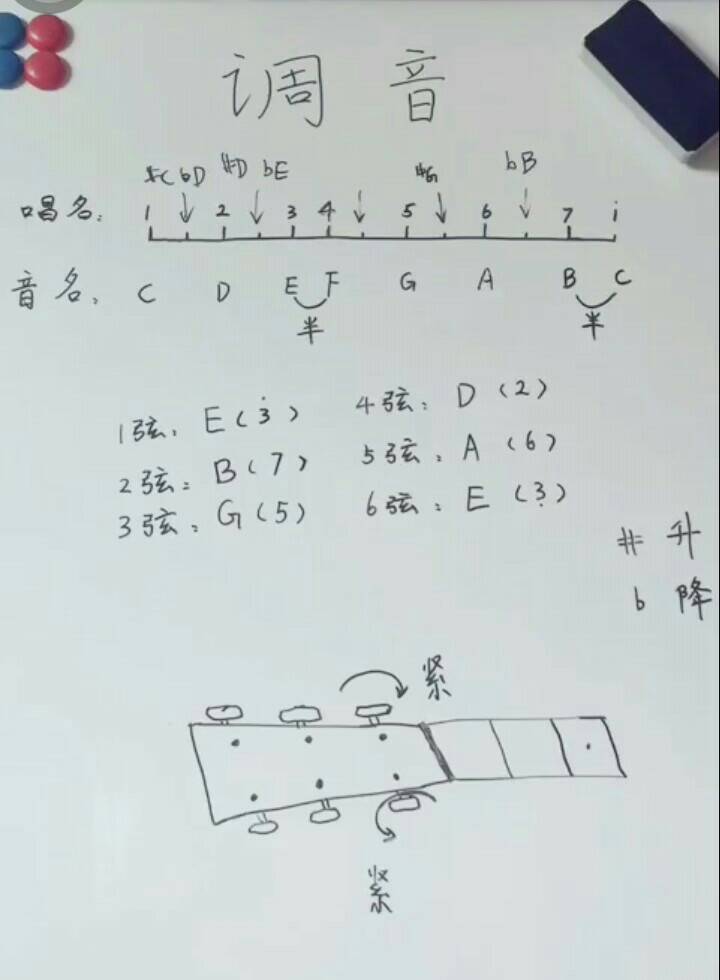 调音
#C bD #D bE #G bB
唱名: 1 2 3 4 5 6 7 i
音名: C D E F G A B C
半 半
1弦: E(3̇) 4弦: D(2)
2弦: B(7) 5弦: A(6)
3弦: G(5) 6弦: E(3̣)
# 升
b 降
紧
紧